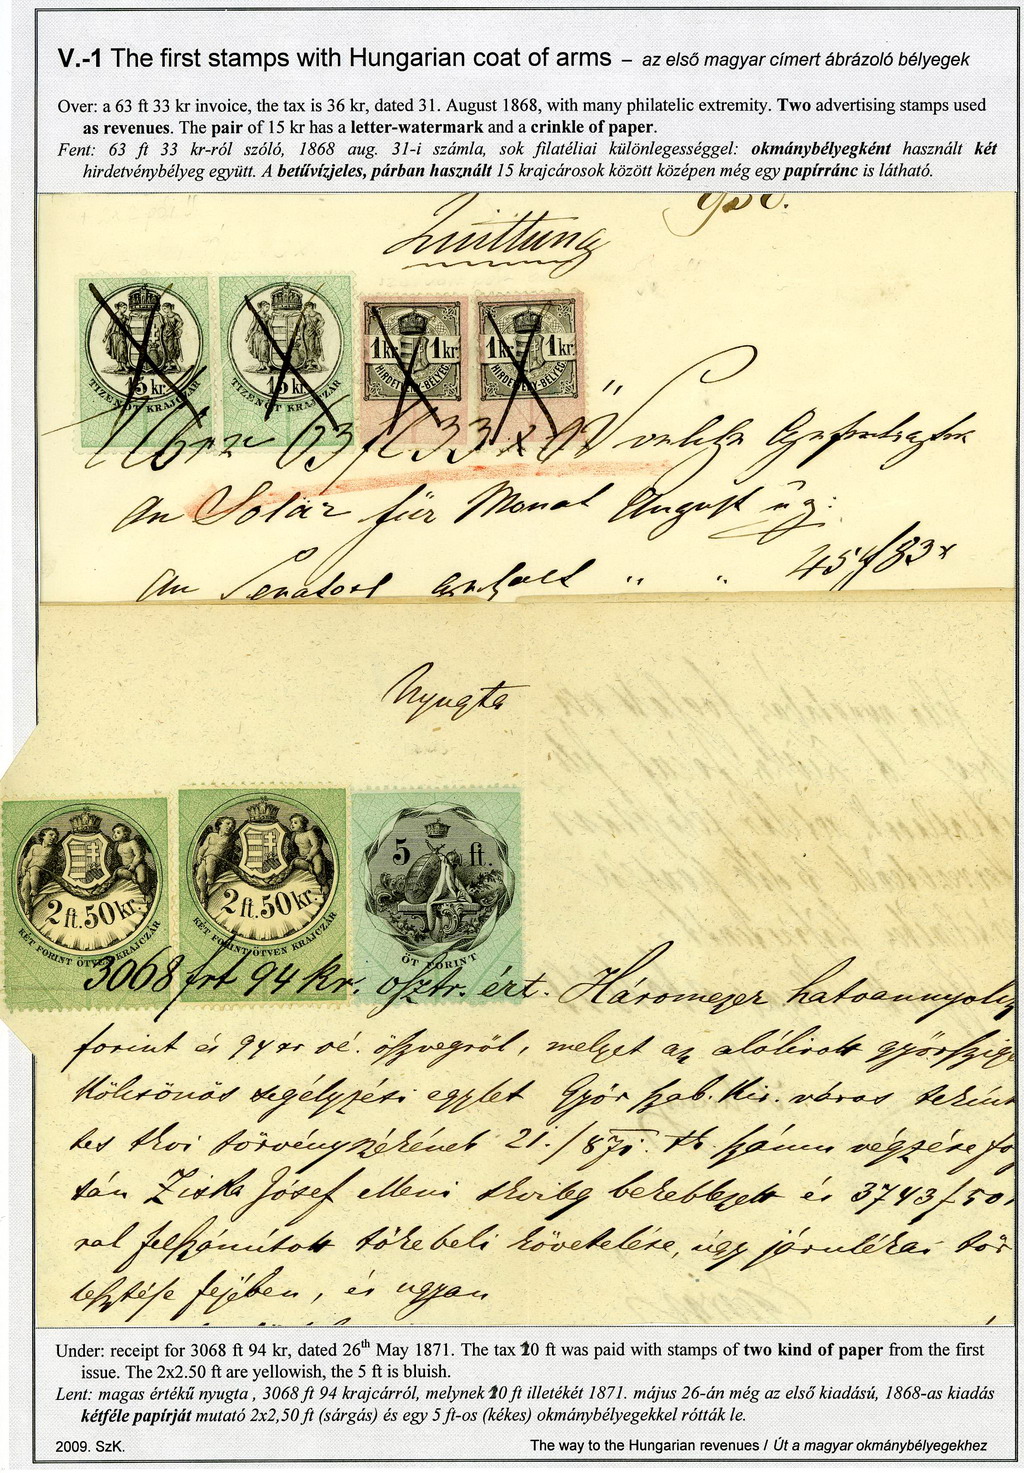 V.-1 The first stamps with Hungarian coat of arms – az első magyar címert ábrázoló bélyegek
Over: a 63 ft 33 kr invoice, the tax is 36 kr, dated 31. August 1868, with many philatelic extremity. Two advertising stamps used
as revenues. The pair of 15 kr has a letter-watermark and a crinkle of paper.
Fent: 63 ft 33 kr-ról szóló, 1868 aug. 31-i számla, sok filatéliai különlegességgel: okmánybélyegként használt két
hirdetvénybélyeg együtt. A betűvízjeles, párban használt 15 krajcárosok között középen még egy papírránc is látható.
Quittung
15 kr. TIZENÖT KRAJCZÁR
15 kr. TIZENÖT KRAJCZÁR
1kr 1kr HIRDETVÉNY-BÉLYEG
1kr 1kr. HIRDETVÉNY-BÉLYEG
Über 63 fl 33 x welche
An Solär für Monat August
An 45 f 83 x
Nyugta
2 ft. 50 kr. KÉT FORINT ÖTVEN KRAJCZÁR
2 ft. 50 kr. KÉT FORINT ÖTVEN KRAJCZÁR
5 ft. ÖT FORINT
3068 frt 94 kr. osztr. ért. Háromezer hatvannyolcz
forint és 94 kr oé. összegről, melyet az alólirott
kölcsönös segélyzési egylet Győr szab. kir. város tekint
tes tkvi törvényszékének 21./871. számu végzése fo
tán Ziska József elleni bekeblezett és 3743 f 50
ral felszámított tőkebeli követelése, úgy járulékai tör
lesztése fejében, és ugyan
Under: receipt for 3068 ft 94 kr, dated 26th May 1871. The tax 10 ft was paid with stamps of two kind of paper from the first
issue. The 2x2.50 ft are yellowish, the 5 ft is bluish.
Lent: magas értékű nyugta , 3068 ft 94 krajcárról, melynek 10 ft illetékét 1871. május 26-án még az első kiadású, 1868-as kiadás
kétféle papírját mutató 2x2,50 ft (sárgás) és egy 5 ft-os (kékes) okmánybélyegekkel rótták le.
2009. SzK. The way to the Hungarian revenues / Út a magyar okmánybélyegekhez